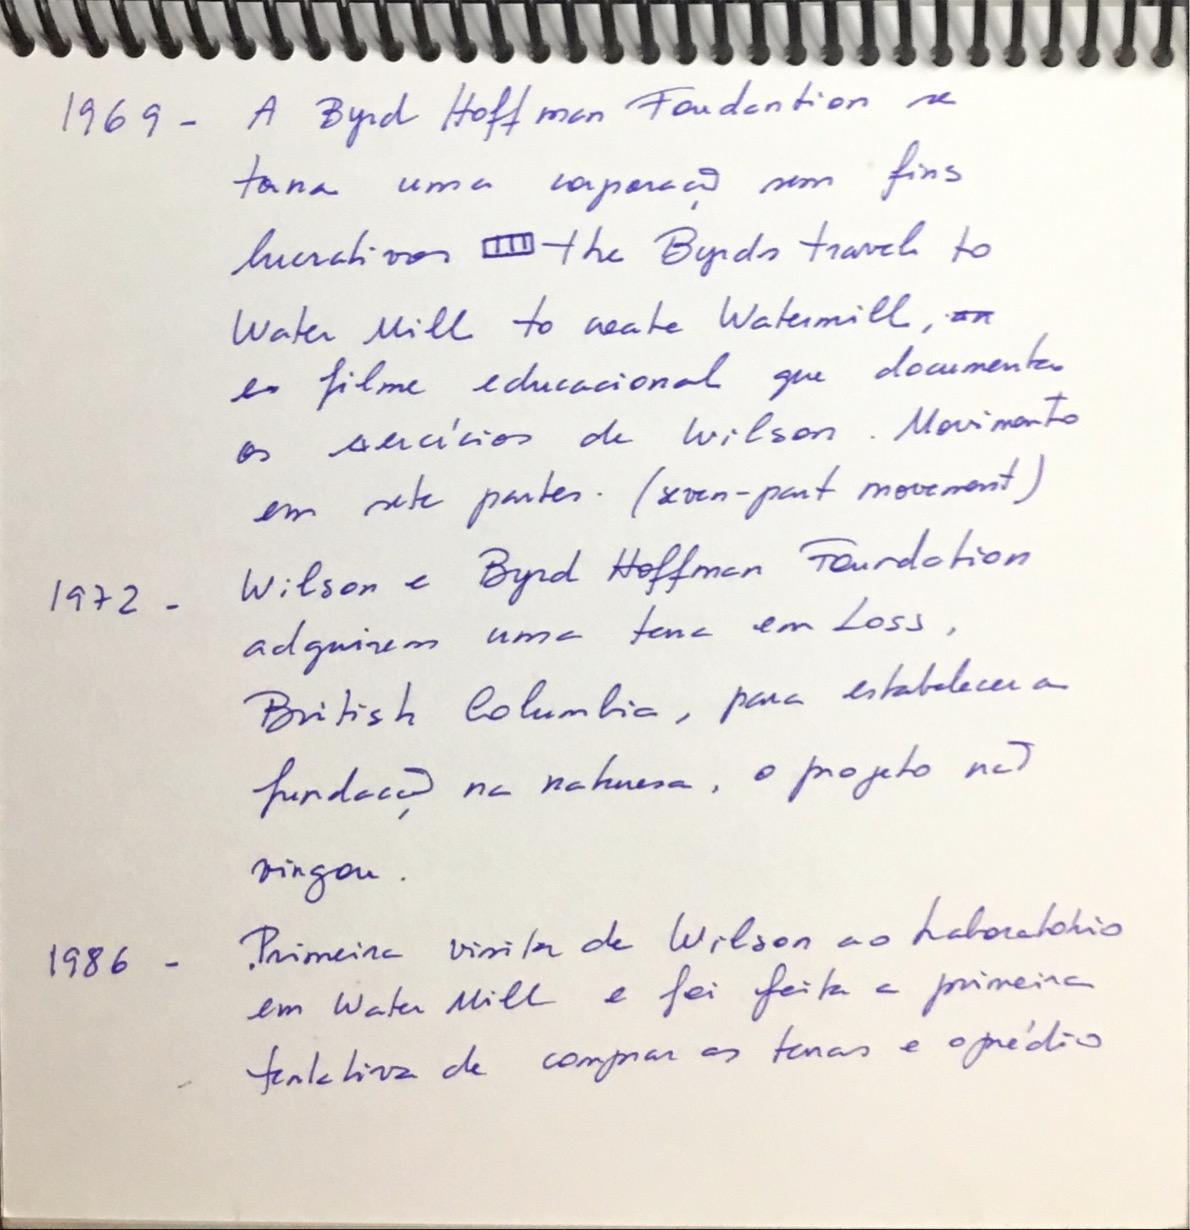 1969 - A Byrd Hoffman Foudantion se
torna uma corporação sem fins
lucrativos the Byrds travel to
Water Mill to create Watermill,
en filme educacional que documenta
os exercícios de Wilson. Movimento
em sete partes. (seven-part movement)
1972 - Wilson e Byrd Hoffman Foundation
adquirem uma terra em Loss,
British Columbia, para estabelecer a
fundação na naturesa, o projeto não
vingou.
1986 - Primeira visita de Wilson ao Laboratório
em Water Mill e foi feita a primeira
tentativa de comprar as terras e o prédio